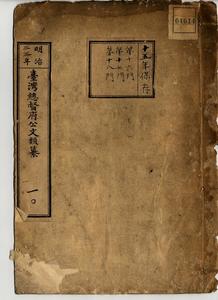 十五年保存
第十六門
第十七門
第十八門
明治
臺灣總督府公文類纂
一〇